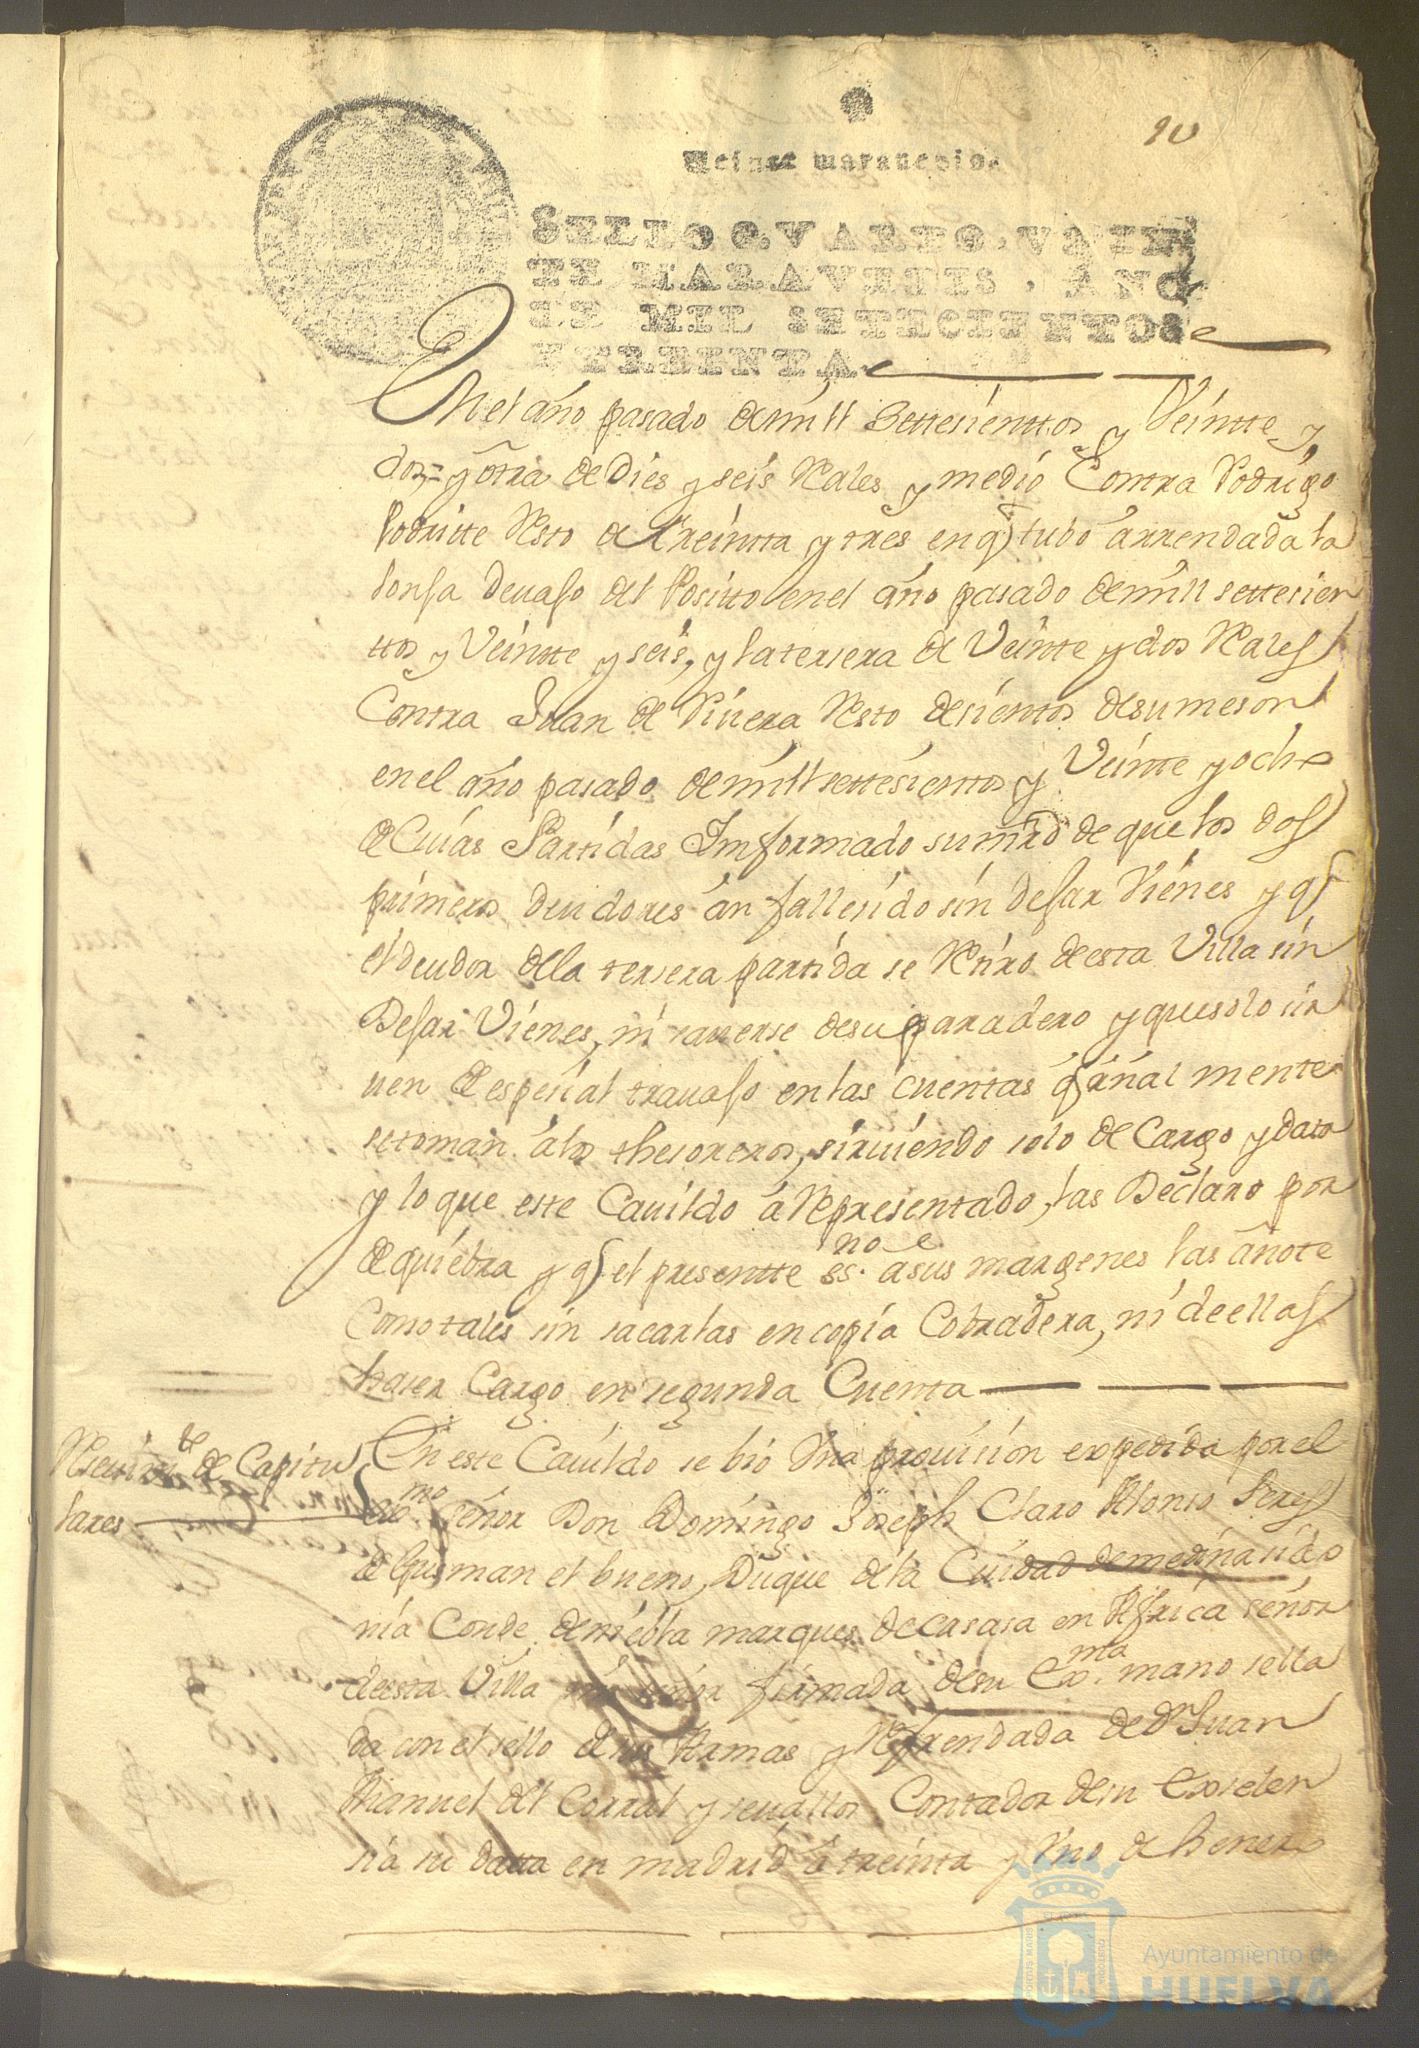 10
Veinte maravedis.
SELLO QVARTO, VEIN
TE MARAVEDIS, AÑO
DE MIL SETECIENTOS
Y TREINTA
En el año pasado de mill Settesienttos y Veintte y
dos= y otra de Dies y seis Rales y medio Contra Rodrigo
Resto de treintta y tres en q tubo arrendada la
lonja devajo del Positto en el año pasado de mill settesien
ttos y Veintte y seis, y la tersera de Veinte y dos Rales
Contra Juan de Rivera Resto de sientos de su meson
en el año pasado de mill settesienttos y Veinte y ocho
de Cuias Partidas Imformado su mrd de que los dos
primeros deudores an fallesido sin dejar Vienes y q
el deudor de la tersera partida se Retiro de esta Villa sin
Dejar Vienes, ni saverse de su paradero y que solo sir
uen de espesial travajo en las cuentas q gralmente
se toman a los thesoreros, sirviendo solo de Cargo y data
y lo que este Cavildo a Representado, las Declaro por
de quiebra y q el presentte esno a sus margenes las añote
Como tales sin sacarlas en copia Cobradera, ni de ellas
haser Cargo en segunda Cuenta
Resevimto de Capitu
lares
En este Cavildo se bio Una provision expedida por el
Exmo señor Don Domingo Joseph Claro Alonso Peres
de Gusman el bueno, Duque de la Ciudad de medina sido
nia Conde de niebla marques de casasa en Africa señor
de esta Villa mi señor firmada de su Exma mano sella
da con el sello de sus Armas y Refrendada de Dn Juan
Manuel del Corral y sevallos Contador de su Exselen
sia su datta en madrid a treinta y Uno de henero
Ayuntamiento de
HUELVA